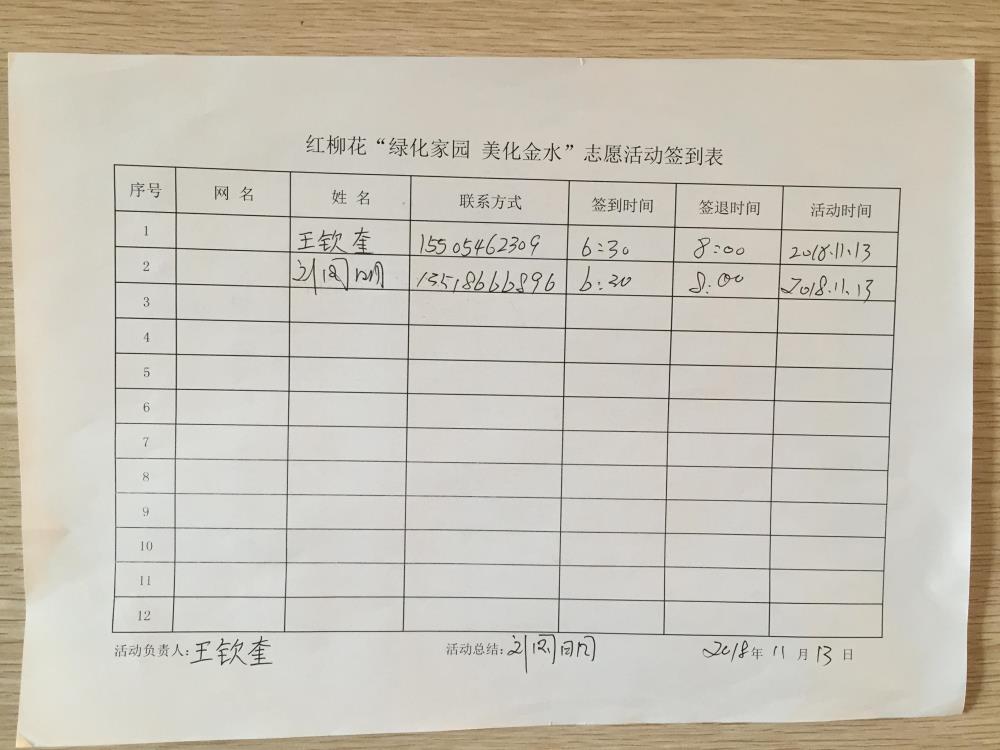 红柳花“绿化家园 美化金水”志愿活动签到表
序号 网 名 姓 名 联系方式 签到时间 签退时间 活动时间
1 王钦奎 15505462309 6:30 8:00 2018.11.13
2 刘 13518666896 6:30 8:00 2018.11.13
3
4
5
6
7
8
9
10
11
12
活动负责人:王钦奎 活动总结:刘 2018年 11 月 13 日